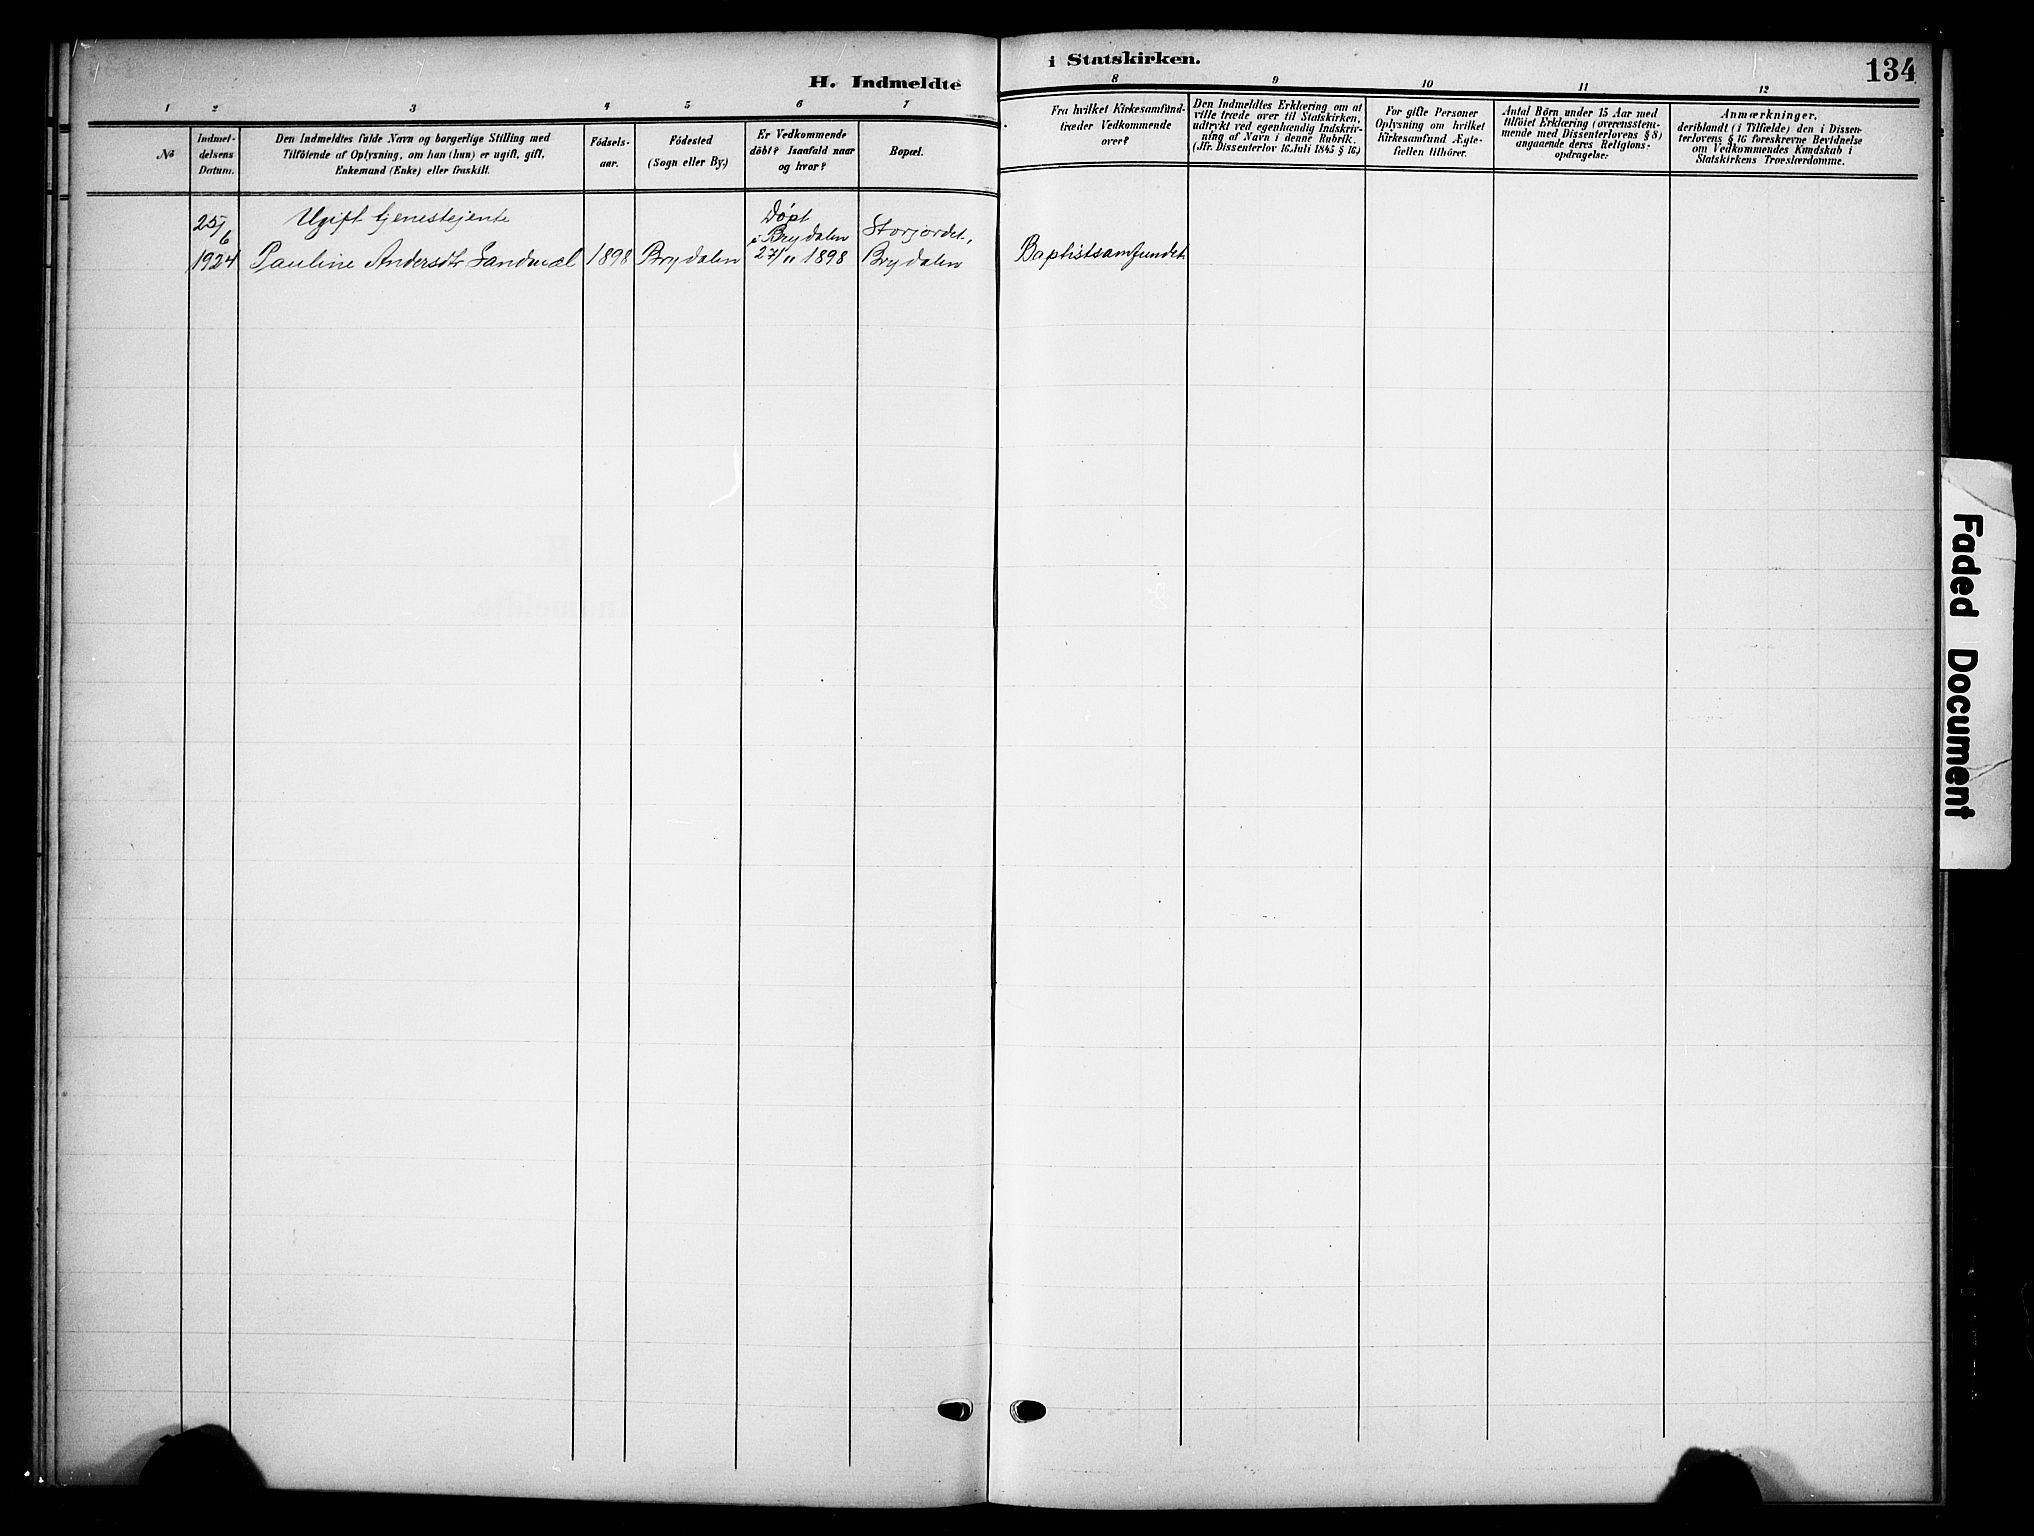 H. Indmeldte
i Statskirken.
134
1
2
3
4
5
6
7
8
9
10
11
12
No
Indmel-
delsens
Datum.
Den Indmeldtes fulde Navn og borgerlige Stilling med
Tilföiende af Oplysning, om han (hun) er ugift, gift,
Enkemand (Enke) eller fraskilt.
Födsels-
aar.
Födested
(Sogn eller By.)
Er Vedkommende
döbt? Isaafald naar
og hvor?
Bopæl.
Fra hvilket Kirkesamfund
træder Vedkommende
over?
Den Indmeldtes Erklæring om at
ville træde over til Statskirken,
udtrykt ved egenhændig Indskriv-
ning af Navn i denne Rubrik.
(Jfr. Dissenterlov 16 Juli 1845 § 16.)
For gifte Personer
Oplysning om hvilket
Kirkesamfund Ægte-
fællen tilhörer.
Antal Börn under 15 Aar med
tilföiet Erklæring (overensstem-
mende med Dissenterlovens § 8)
angaaende deres Religions-
opdragelse.
Anmærkninger,
deriblandt (i Tilfælde) den i Dissen-
terlovens § 16 foreskrevne Bevidnelse
om Vedkommendes Kundskab i
Statskirkens Troeslærdomme.
25/6
1924
Ugift tjenestejente
Pauline Andersdtr Sandmæl
1898
Brydalen
Døpt
i Brydalen
27/11 1898
Storjordet,
Brydalen
Baptistsamfundet
Faded Document